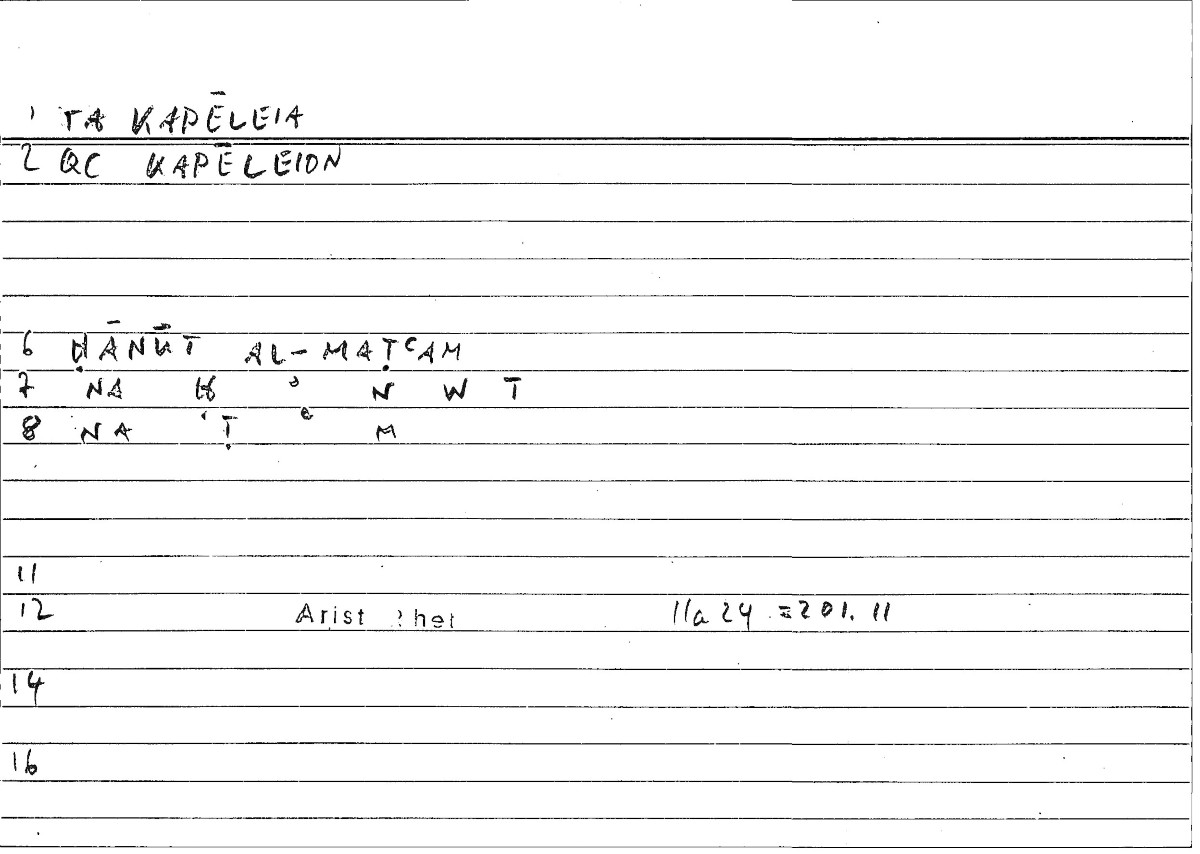 1 TA KAPĒLEIA
2 QC KAPĒLEION
6 ḤĀNŪT AL-MAṬCAM
7 NA Ḥ ɔ N W T
8 NA Ṭ c M
11
12 Arist Rhet 11a24 =201.11
14
16